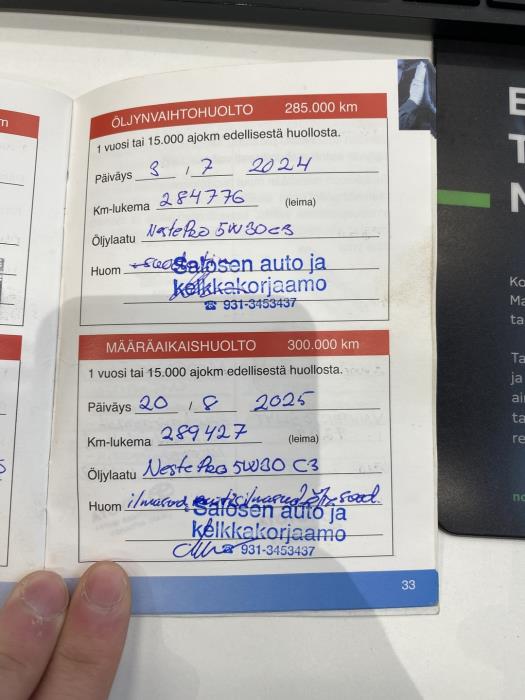 ÖLJYNVAIHTOHUOLTO 285.000 km
1 vuosi tai 15.000 ajokm edellisestä huollosta.
Päiväys 3 / 7 2024
Km-lukema 284776 (leima)
Öljylaatu Neste Pro 5W30 C3
Huom
Salosen auto ja
kelkkakorjaamo
☎ 931-3453437
MÄÄRÄAIKAISHUOLTO 300.000 km
1 vuosi tai 15.000 ajokm edellisestä huollosta.
Päiväys 20 / 8 2025
Km-lukema 289427 (leima)
Öljylaatu Neste Pro 5W30 C3
Huom ilmasuod.
Salosen auto ja
kelkkakorjaamo
☎ 931-3453437
33
m
5
E
T
N
Ko
Ma
ta
Ta
ja
ai
ta
re
no